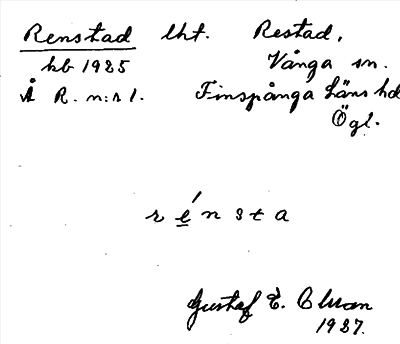 Renstad lht. Restad,
kb 1925 Vånga sn.
Å R. n:r 1. Finspånga läns hd
Ögl.
r é n s t a
Gustaf E.
1927.